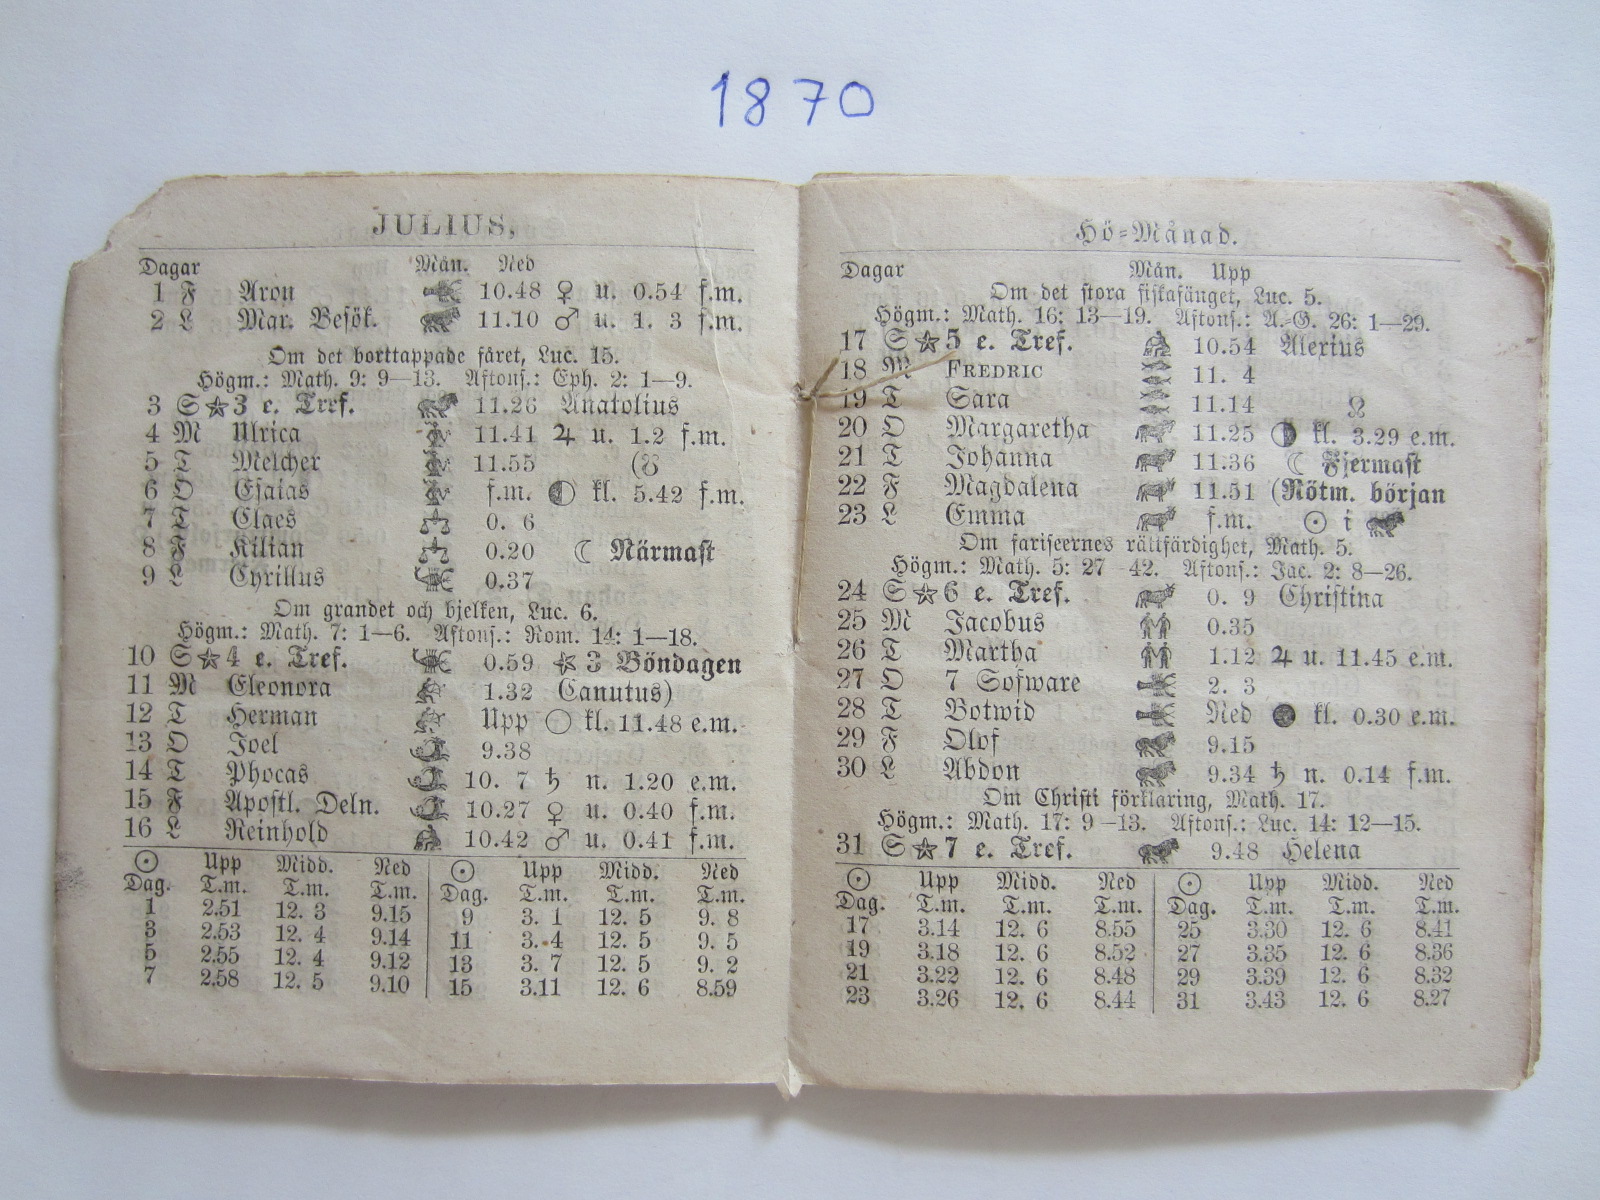 1870
JULIUS,
Dagar Mån. Ned
1 F Aron 10.48 ♀ u. 0.54 f.m.
2 L Mar. Besök. 11.10 ♂ u. 1. 3 f.m.
Om det borttappade fåret, Luc. 15.
Högm.: Math. 9: 9—13. Aftons.: Eph. 2: 1—9.
3 S ☆ 3 e. Tref. 11.26 Anatolius
4 M Ulrica 11.41 ♃ u. 1.2 f.m.
5 T Melcher 11.55 (☋
6 O Esaias f.m. ◐ kl. 5.42 f.m.
7 T Claes 0. 6
8 F Kilian 0.20 ☾ Närmast
9 L Cyrillus 0.37
Om grandet och bjelken, Luc. 6.
Högm.: Math. 7: 1—6. Aftons.: Rom. 14: 1—18.
10 S ☆ 4 e. Tref. 0.59 ☆ 3 Böndagen
11 M Eleonora 1.32 Canutus)
12 T Herman Upp ○ kl. 11.48 e.m.
13 O Joel 9.38
14 T Phocas 10. 7 ♄ n. 1.20 e.m.
15 F Apostl. Deln. 10.27 ♀ u. 0.40 f.m.
16 L Reinhold 10.42 ♂ u. 0.41 f.m.
☉ Upp Midd. Ned ☉ Upp Midd. Ned
Dag. T.m. T.m. T.m. Dag. T.m. T.m. T.m.
1 2.51 12. 3 9.15 9 3. 1 12. 5 9. 8
3 2.53 12. 4 9.14 11 3. 4 12. 5 9. 5
5 2.55 12. 4 9.12 13 3. 7 12. 5 9. 2
7 2.58 12. 5 9.10 15 3.11 12. 6 8.59
Hö-Månad.
Dagar Mån. Upp
Om det stora fiskafänget, Luc. 5.
Högm.: Math. 16: 13—19. Aftons.: A.-G. 26: 1—29.
17 S ☆ 5 e. Tref. 10.54 Alexius
18 M FREDRIC 11. 4
19 T Sara 11.14 ☊
20 O Margaretha 11.25 ◑ kl. 3.29 e.m.
21 T Johanna 11.36 ☾ Fjermast
22 F Magdalena 11.51 (Rötm. början
23 L Emma f.m. ☉ i
Om fariseernes rättfärdighet, Math. 5.
Högm.: Math. 5: 27—42. Aftons.: Jac. 2: 8—26.
24 S ☆ 6 e. Tref. 0. 9 Christina
25 M Jacobus 0.35
26 T Martha 1.12 ♃ u. 11.45 e.m.
27 O 7 Sofware 2. 3
28 T Botwid Ned ● kl. 0.30 e.m.
29 F Olof 9.15
30 L Abdon 9.34 ♄ n. 0.14 f.m.
Om Christi förklaring, Math. 17.
Högm.: Math. 17: 9—13. Aftons.: Luc. 14: 12—15.
31 S ☆ 7 e. Tref. 9.48 Helena
☉ Upp Midd. Ned ☉ Upp Midd. Ned
Dag. T.m. T.m. T.m. Dag. T.m. T.m. T.m.
17 3.14 12. 6 8.55 25 3.30 12. 6 8.41
19 3.18 12. 6 8.52 27 3.35 12. 6 8.36
21 3.22 12. 6 8.48 29 3.39 12. 6 8.32
23 3.26 12. 6 8.44 31 3.43 12. 6 8.27